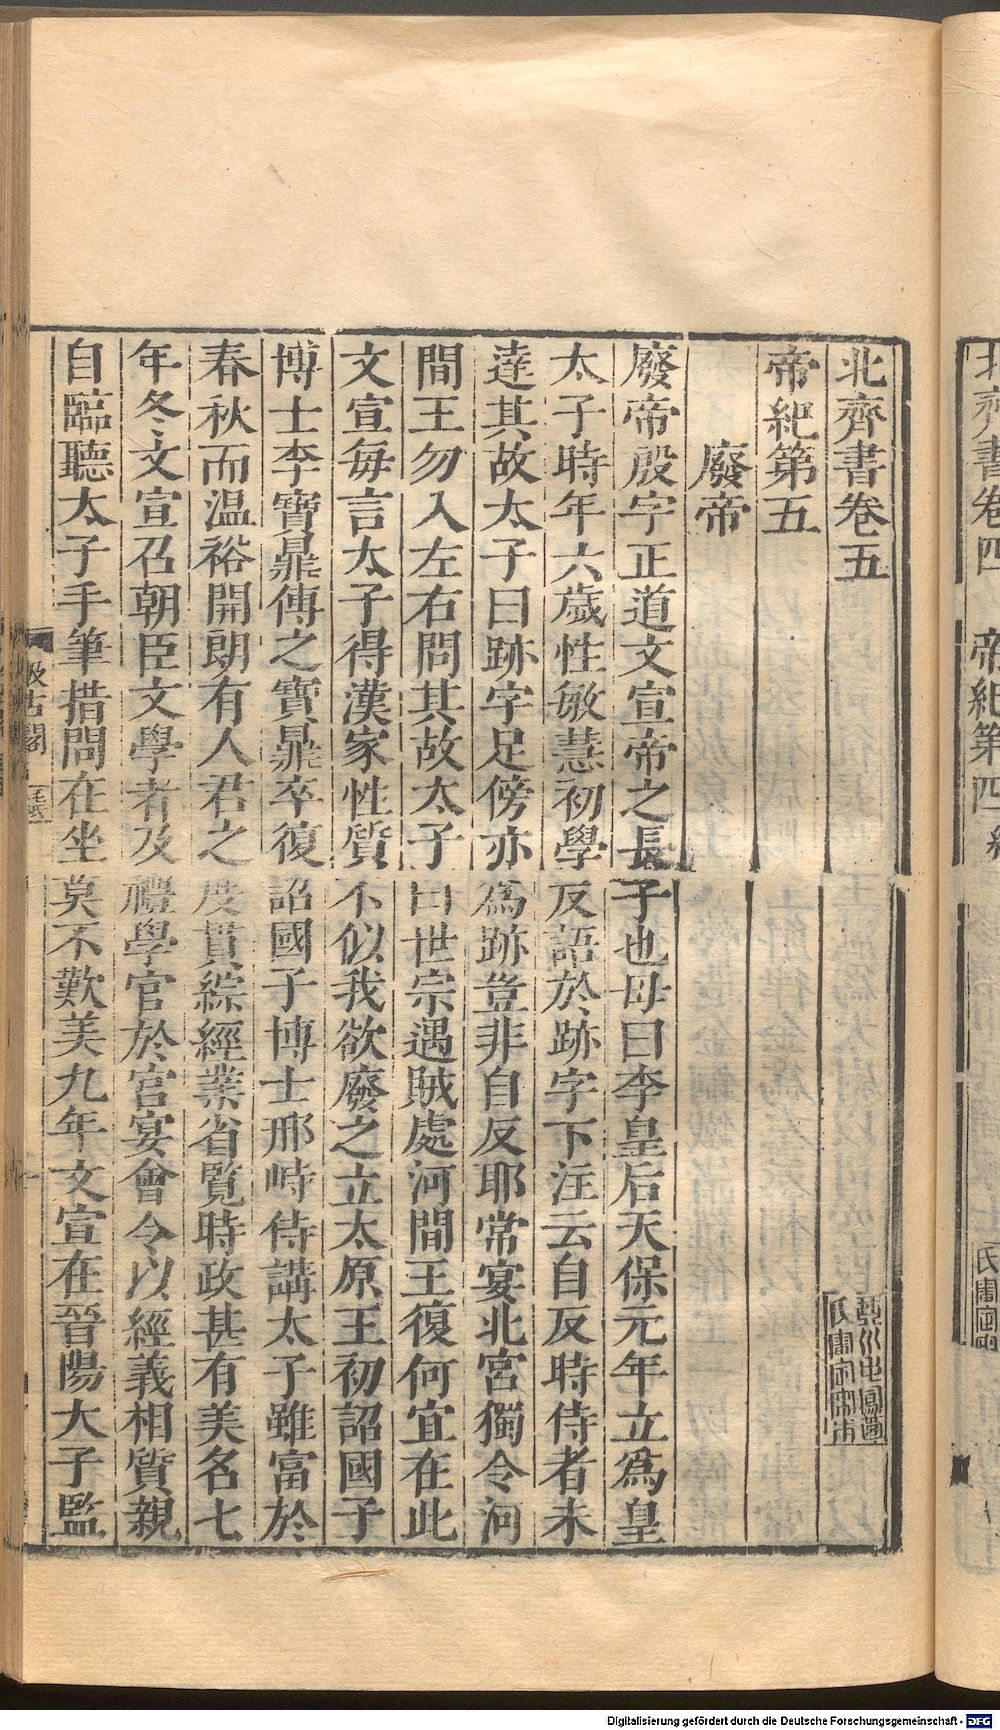 北齊書卷五
帝紀第五
廢帝
廢帝殷字正道文宣帝之長子也母曰李皇后天保元年立爲皇
太子時年六歲性敏慧初學反語於跡字下注云自反時侍者未
達其故太子曰跡字足傍亦爲跡豈非自反耶常宴北宮獨令河
間王勿入左右問其故太子曰世宗遇賊處河間王復何宜在此
文宣每言太子得漢家性質不似我欲廢之立太原王初詔國子
博士李寶鼎傅之寶鼎卒復詔國子博士邢峙侍講太子雖富於
春秋而温裕開朗有人君之度貫綜經業省覽時政甚有美名七
年冬文宣召朝臣文學者及禮學官於宮宴會令以經義相質親
自臨聽太子手筆措問在坐莫不歎美九年文宣在晉陽大子監
汲古閣
北齊書卷四
帝紀第四
Digitalisierung gefördert durch die Deutsche Forschungsgemeinschaft - DFG